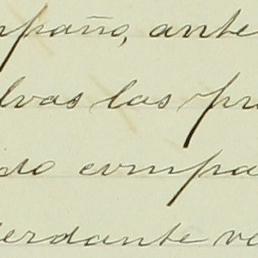 mpaño, ante
lvas las pr
ido compa
erdante ve